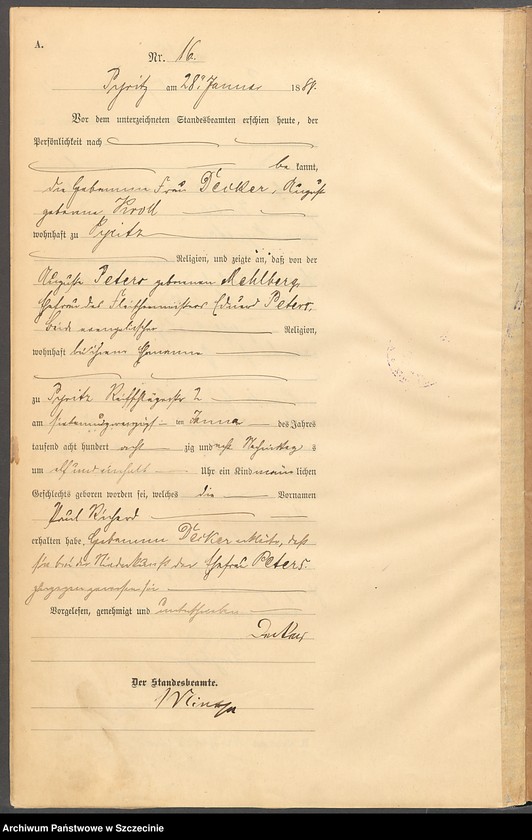 A.
Nr. 16.
Pyritz am 28. Januar 1889.
Vor dem unterzeichneten Standesbeamten erschien heute, der
Persönlichkeit nach
bekannt,
die Hebamme Frau Decker, August
geborene Kroll
wohnhaft zu Pyritz
Religion, und zeigte an, daß von der
Auguste Peters geborenen Mehlberg,
Ehefrau des Fleischermeisters Eduard Peters,
beide evangelischer Religion,
wohnhaft bei ihrem Ehemanne
zu Pyritz 2
am siebenundzwanzigsten Januar des Jahres
tausend acht hundert acht zig und Nachmittag s
um elf und einhalb Uhr ein Kind männlichen
Geschlechts geboren worden sei, welches die Vornamen
Paul Richard
erhalten habe. Hebamme Decker erklärte, daß
sie bei der Niederkunft der Ehefrau Peters
zugegen gewesen sei.
Vorgelesen, genehmigt und unterschrieben
Decker
Der Standesbeamte.
Archiwum Państwowe w Szczecinie